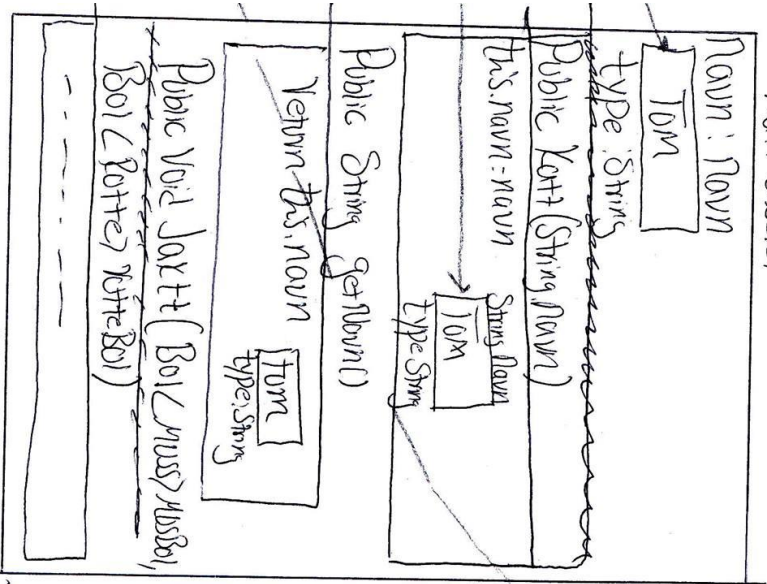 Navn: Navn
Tom
type: String
Public Katt(String navn)
this.navn=navn
String Navn
Tom
type String
Public String getNavn()
return this.navn
Tom
type: String
Public Void Jakett(Bol<Mus> MusBol,
Bol<Katte> KatteBol)